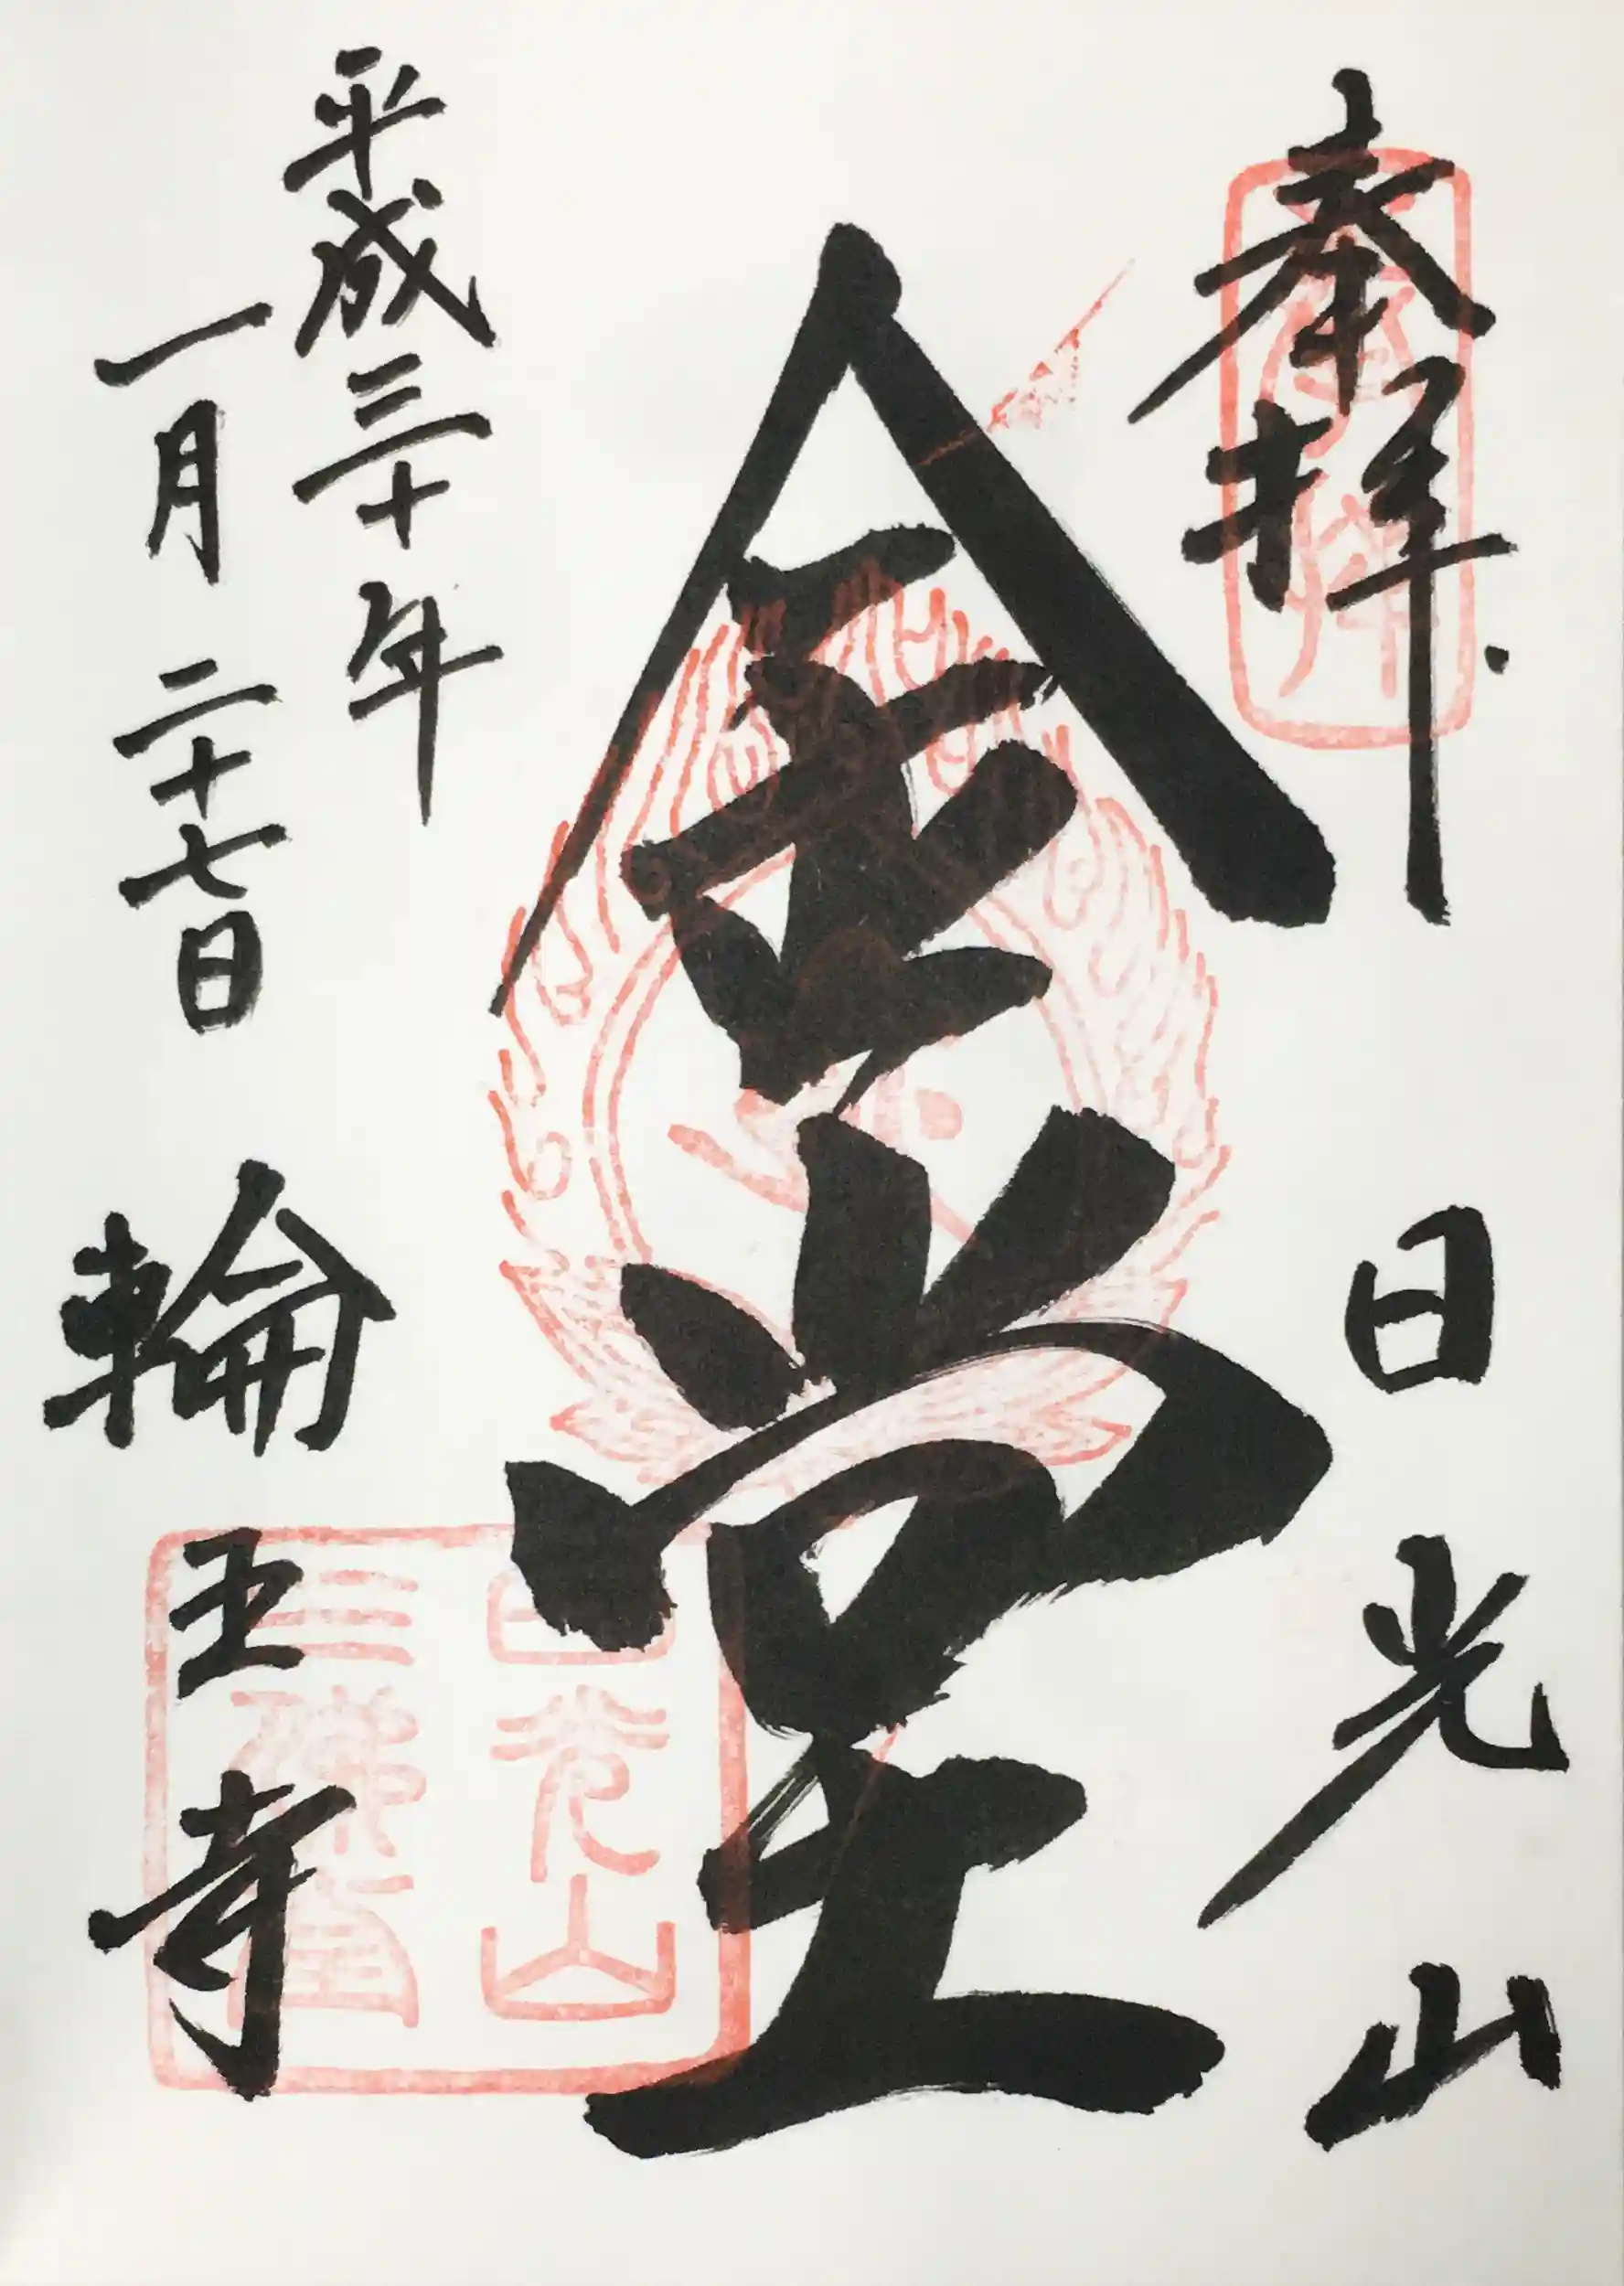 奉拝
日光山
金堂
平成三十年
一月二十七日
輪王寺
日光山
三佛堂